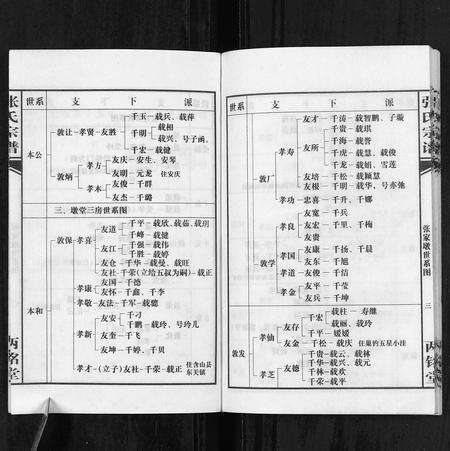 张氏宗谱
两铭堂
世系 支 下 派
本公
敦让 孝贤 友胜
千玉 载兵、载萍
千明 载相
载兴、号子函。
千宏 载健
敦炳 孝方 友庆 安生、安琴
友明 元龙 住安庆
孝本 友俊 千群
友杰 千璐
三、墩堂三房世系图
本和
敦保 孝喜 友道 千平 载欣、载茹、载玥
千峰 载健
友江 千强 载伟
千胜 载婷
友仓 千华 载曼、载旺
友社 千荣(立给五叔为嗣) 载正
孝康 友国 千德
友怀 千鑫、千李
孝敬 友法 千军 载骢
孝新 友安 千刁
千鹏 载玲、号玲儿
友奎 千飞
友坤 千婷、千贝
孝才 (立子)友社 千荣 载正 住含山县东关镇
世系 支 下 派
敦厂 孝寿 友才 千涛 载智鹏、子璇
千贵 载琪
友所 千海 载誉
千虎 载慧、载俊
千龙 载娟、雪莲
友培 千松 载颖慧
友根 千明 载华、号亦弛
孝功 忠喜 千升、千娜
敦学 孝良 友宽 千兵
友宏 千里、千梅
友贵
孝国 友康 千扬、千晨
友东 千旭
孝道 友俊 千洁
孝金 友平 千莹
友兵 千坤
敦发 孝仙 友存 千宏 载柱 寿继
载丽、载玲
千平 媛媛
友金 千松 载庆 住巢的五星小洼
孝芝 友德 千贵 载云、载林
千华 载兴、载元
千林 载欢
千荣 载平
张氏宗谱
张家墩世系图
三
两铭堂